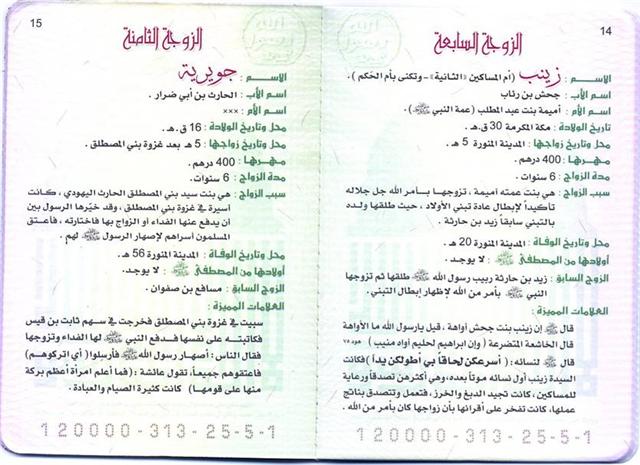 14
الزوجة السابعة
الاسـم : زينب (أم المساكين «الثانية» - وتكنى بأم الحكم) .
اسم الأب : جحش بن رئاب
اسم الأم : أميمة بنت عبد المطلب (عمة النبي ﷺ) .
تاريخ الولادة : مكة المكرمة 30 ق.هـ .
محل وتاريخ زواجها : المدينة المنورة 5 هـ .
مهـرهـا : 400 درهم .
مدة الزواج : 6 سنوات .
سبب الزواج : هي بنت عمته أميمة ، تزوجها بـأمر الله جل جلاله
تأكيداً لإبطال عادة تبني الأولاد ، حيث طلقها ولده
بالتبني سابقاً زيد بن حارثة .
محل وتاريخ الوفاة : المدينة المنورة 20 هـ .
أولادها من المصطفى ﷺ : لا يوجد .
الزوج السابق : زيد بن حارثة ربيب رسول الله ﷺ طلقها ثم تزوجها
النبي ﷺ بأمر من الله لإظهار إبطال التبني .
العلامات المميزة :
قال ﷺ إن زينب بنت جحش أواهة ، قيل يارسول الله ما الأواهة
قال الخاشعة المتضرعة ( وإن ابراهيم لحليم أواه منيب ) هود ٧٥
قال ﷺ لنسائه : ( أسرعكن لحاقاً بي أطولكن يداً ) فكانت
السيدة زينب أول نسائه موتاً بعده، وهي أكثرهن تصدقاً ورعاية
للمساكين ، كانت تجيد الدبغ والخرز ، فتعمل وتتصدق بناتج
عملها، كانت تفخر على أقرانها بأن زواجها كان بأمر من الله .
120000-313-25-5-1
15
الزوجة الثامنة
الاسـم : جويرية
اسم الأب : الحارث بن أبي ضرار .
اسم الأم : ×××
محل وتاريخ الولادة : 16 ق.هـ .
محل وتاريخ زواجها : 5 هـ بعد غزوة بني المصطلق .
مهـرهـا : 400 درهم .
مدة الزواج : 6 سنوات .
سبب الزواج : هي بنت سيد بني المصطلق الحارث اليهودي ، كـانت
أسيرة في غزوة بني المصطلق ، وقد خيّرها الرسول بين
أن يدفع عنها الفداء أو الزواج بها فاختارته ، فأعتـق
المسلمون أسراهم لإصهار الرسول ﷺ لهم .
محل وتاريخ الوفـاة : المدينة المنورة 56 هـ .
أولادها من المصطفى ﷺ : لا يوجد .
الزوج السابق : مسافع بن صفوان .
العلامات المميزة :
سبيت في غزوة بني المصطلق فخرجت في سهم ثابت بن قيس
فكاتبته على نفسها فدفع النبي ﷺ لها الفداء وتزوجها
فقال الناس : أصهار رسول الله ﷺ فأرسلوا ( أي اتركوهم )
فاعتقوهم جميعاً، تقول عائشة : ( فما أعلم امرأة أعظم بركة
منها على قومها ) كانت كثيرة الصيام والعبادة .
120000-313-25-5-1